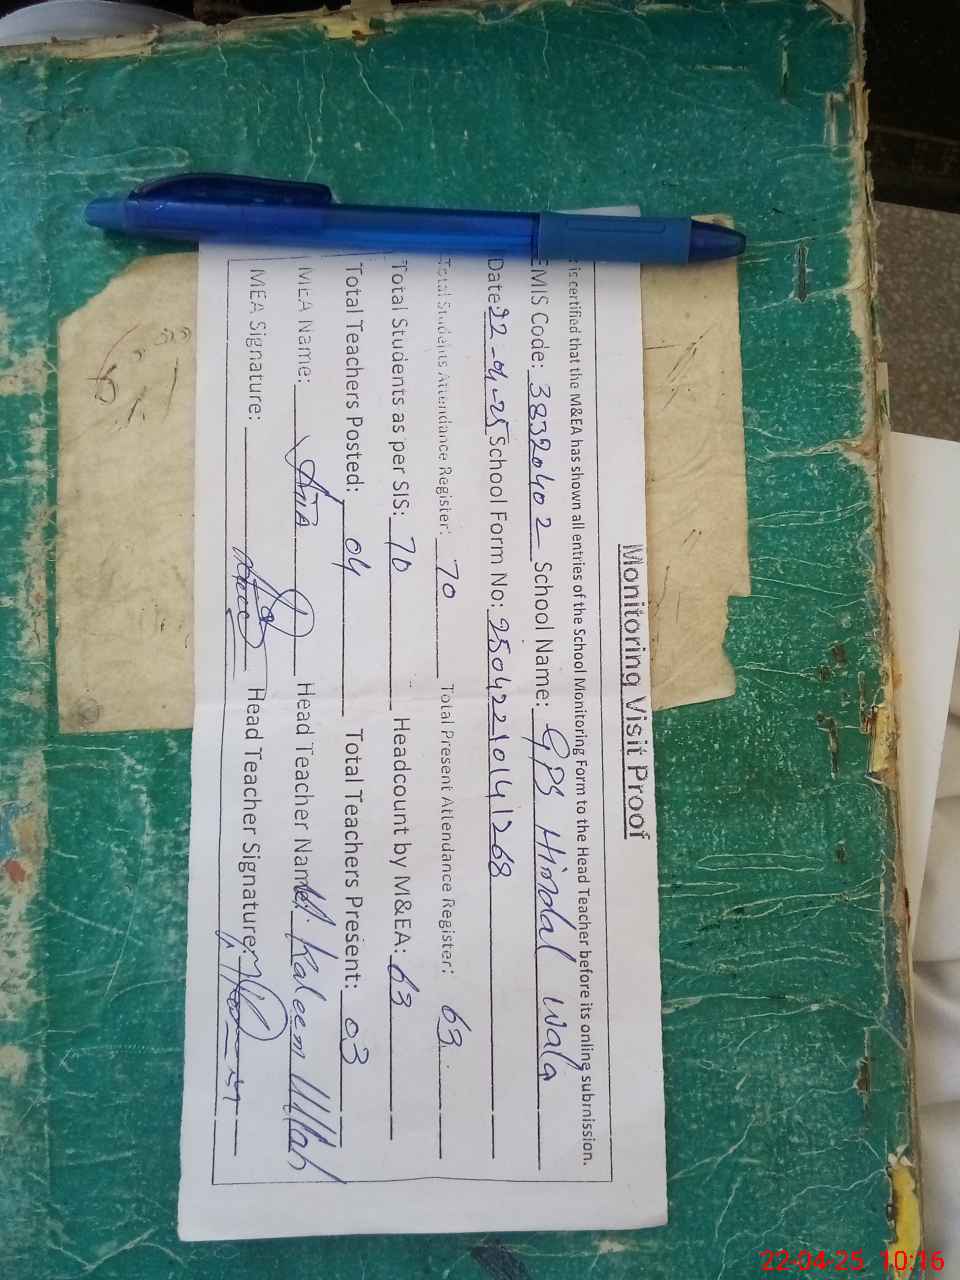 Monitoring Visit Proof
is certified that the M&EA has shown all entries of the School Monitoring Form to the Head Teacher before its online submission.
EMIS Code: 38320402 School Name: GPS Hindal Wala
Date 22-04-25 School Form No: 25042210141268
Total Students Attendance Register: 70 Total Present Attendance Register: 63
Total Students as per SIS: 70 Headcount by M&EA: 63
Total Teachers Posted: 04 Total Teachers Present: 03
MEA Name: Head Teacher Name: Kaleem Ullah
MEA Signature: Head Teacher Signature:
22-04-25 10:16